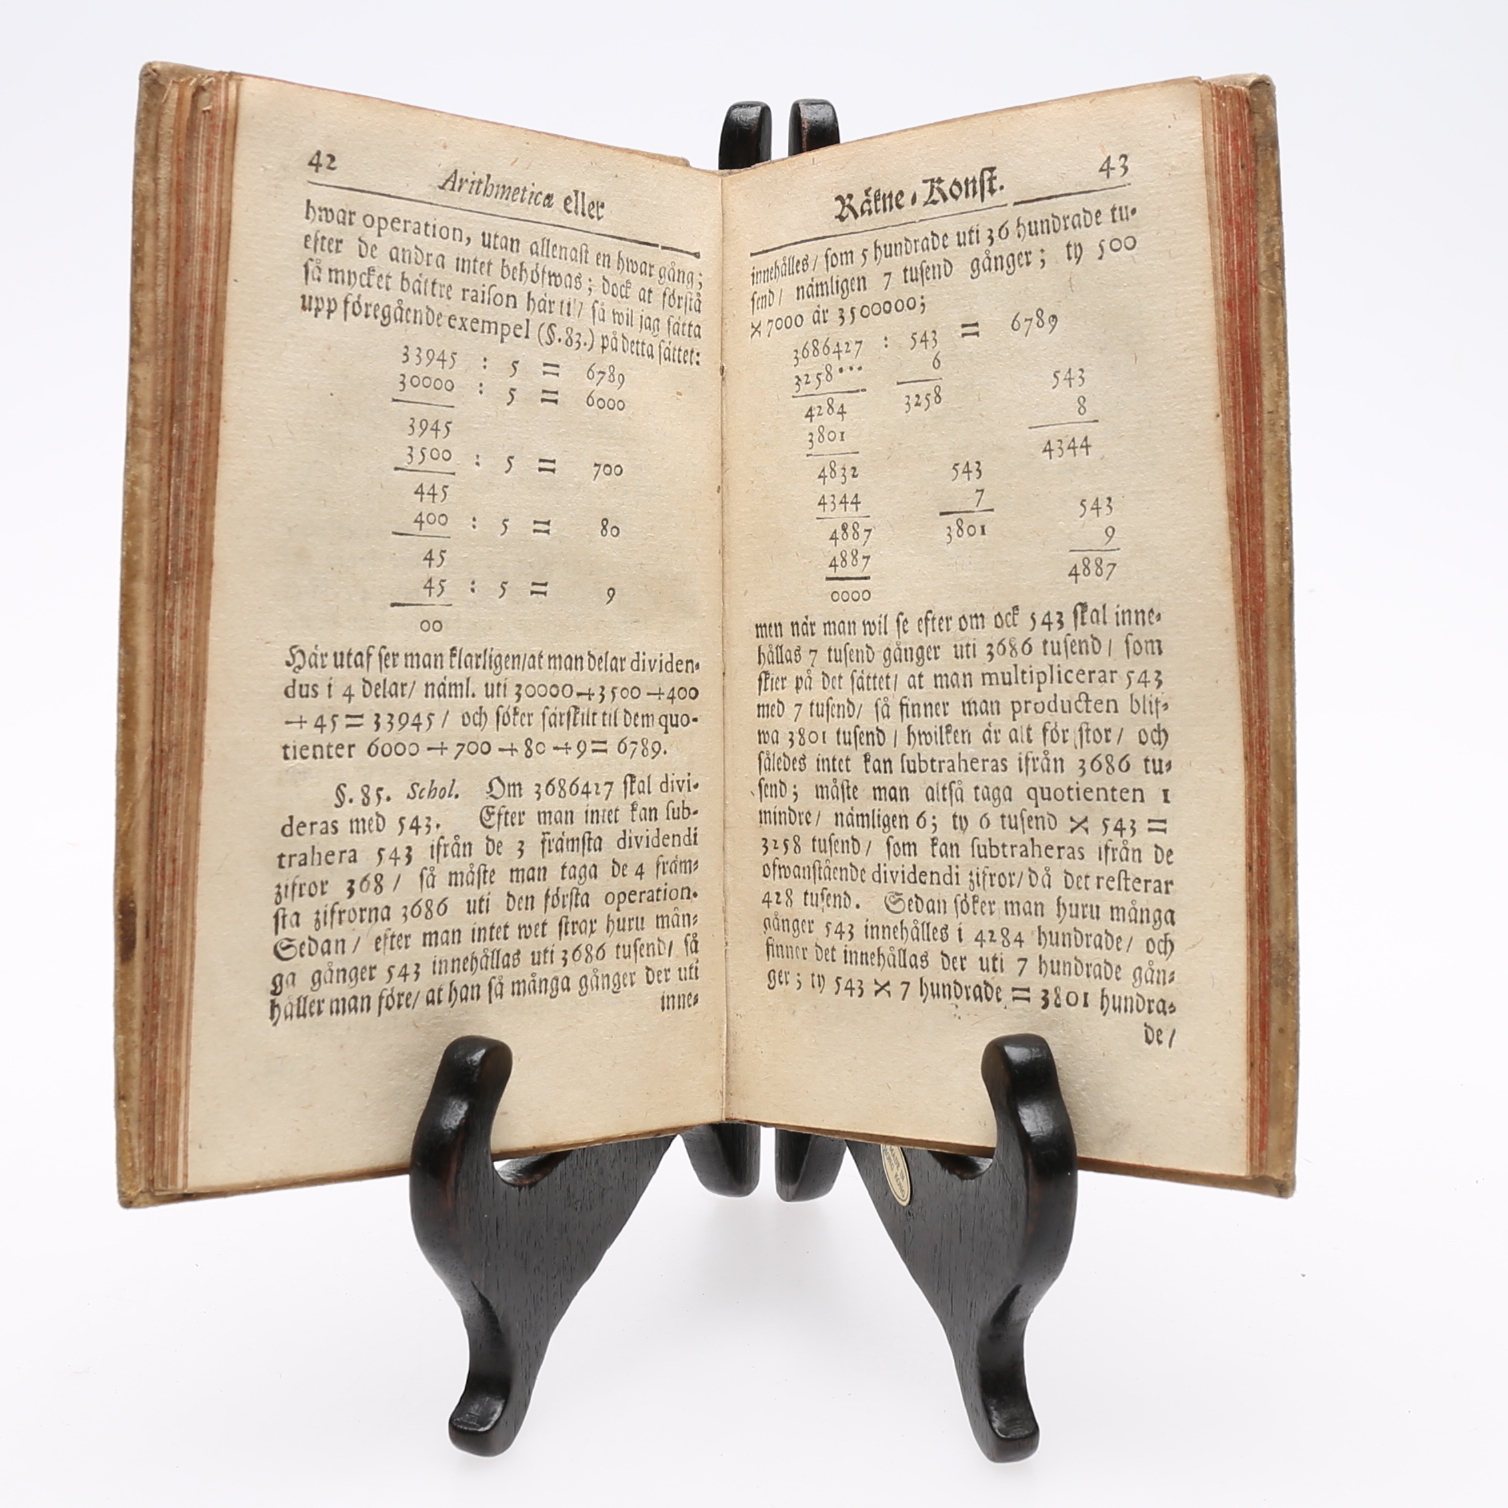 42
Arithmeticæ eller
hwar operation, utan allenast en hwar gång;
efter de andra intet behöfwas; dock at förstå
så mycket bättre raison här til/ så wil jag sätta
upp föregående exempel (§.83.) på detta sättet:
33945 : 5 = 6789
30000 : 5 = 6000
3945
3500 : 5 = 700
445
400 : 5 = 80
45
45 : 5 = 9
00
Här utaf ser man klarligen/at man delar dividen-
dus i 4 delar/ näml. uti 30000+3500+400
+45=33945/ och söker särskilt til dem quo-
tienter 6000+700+80+9=6789.
§. 85. Schol. Om 3686427 skal divi-
deras med 543. Efter man intet kan sub-
trahera 543 ifrån de 3 främsta dividendi
zifror 368/ så måste man taga de 4 främ-
sta zifrorna 3686 uti den första operation.
Sedan/ efter man intet wet strax huru mån-
ga gånger 543 innehållas uti 3686 tusend/ så
håller man före/ at han så många gånger der uti
inne-
Räkne-Konst.
43
innehålles/ som 5 hundrade uti 36 hundrade tu-
send/ nämligen 7 tusend gånger; ty 500
×7000 är 3500000;
3686427 : 543 = 6789
3258••• 6 543
4284 3258 8
3801 4344
4832 543
4344 7 543
4887 3801 9
4887 4887
0000
men när man wil se efter om ock 543 skal inne-
hållas 7 tusend gånger uti 3686 tusend/ som
skier på det sättet/ at man multiplicerar 543
med 7 tusend/ så finner man producten blif-
wa 3801 tusend/ hwilken är alt för stor/ och
således intet kan subtraheras ifrån 3686 tu-
send; måste man altså taga quotienten 1
mindre/ nämligen 6; ty 6 tusend × 543 =
3258 tusend/ som kan subtraheras ifrån de
ofwanstående dividendi zifror/ då det resterar
428 tusend. Sedan söker man huru många
gånger 543 innehålles i 4284 hundrade/ och
finner det innehållas der uti 7 hundrade gån-
ger; ty 543 × 7 hundrade = 3801 hundra-
de/